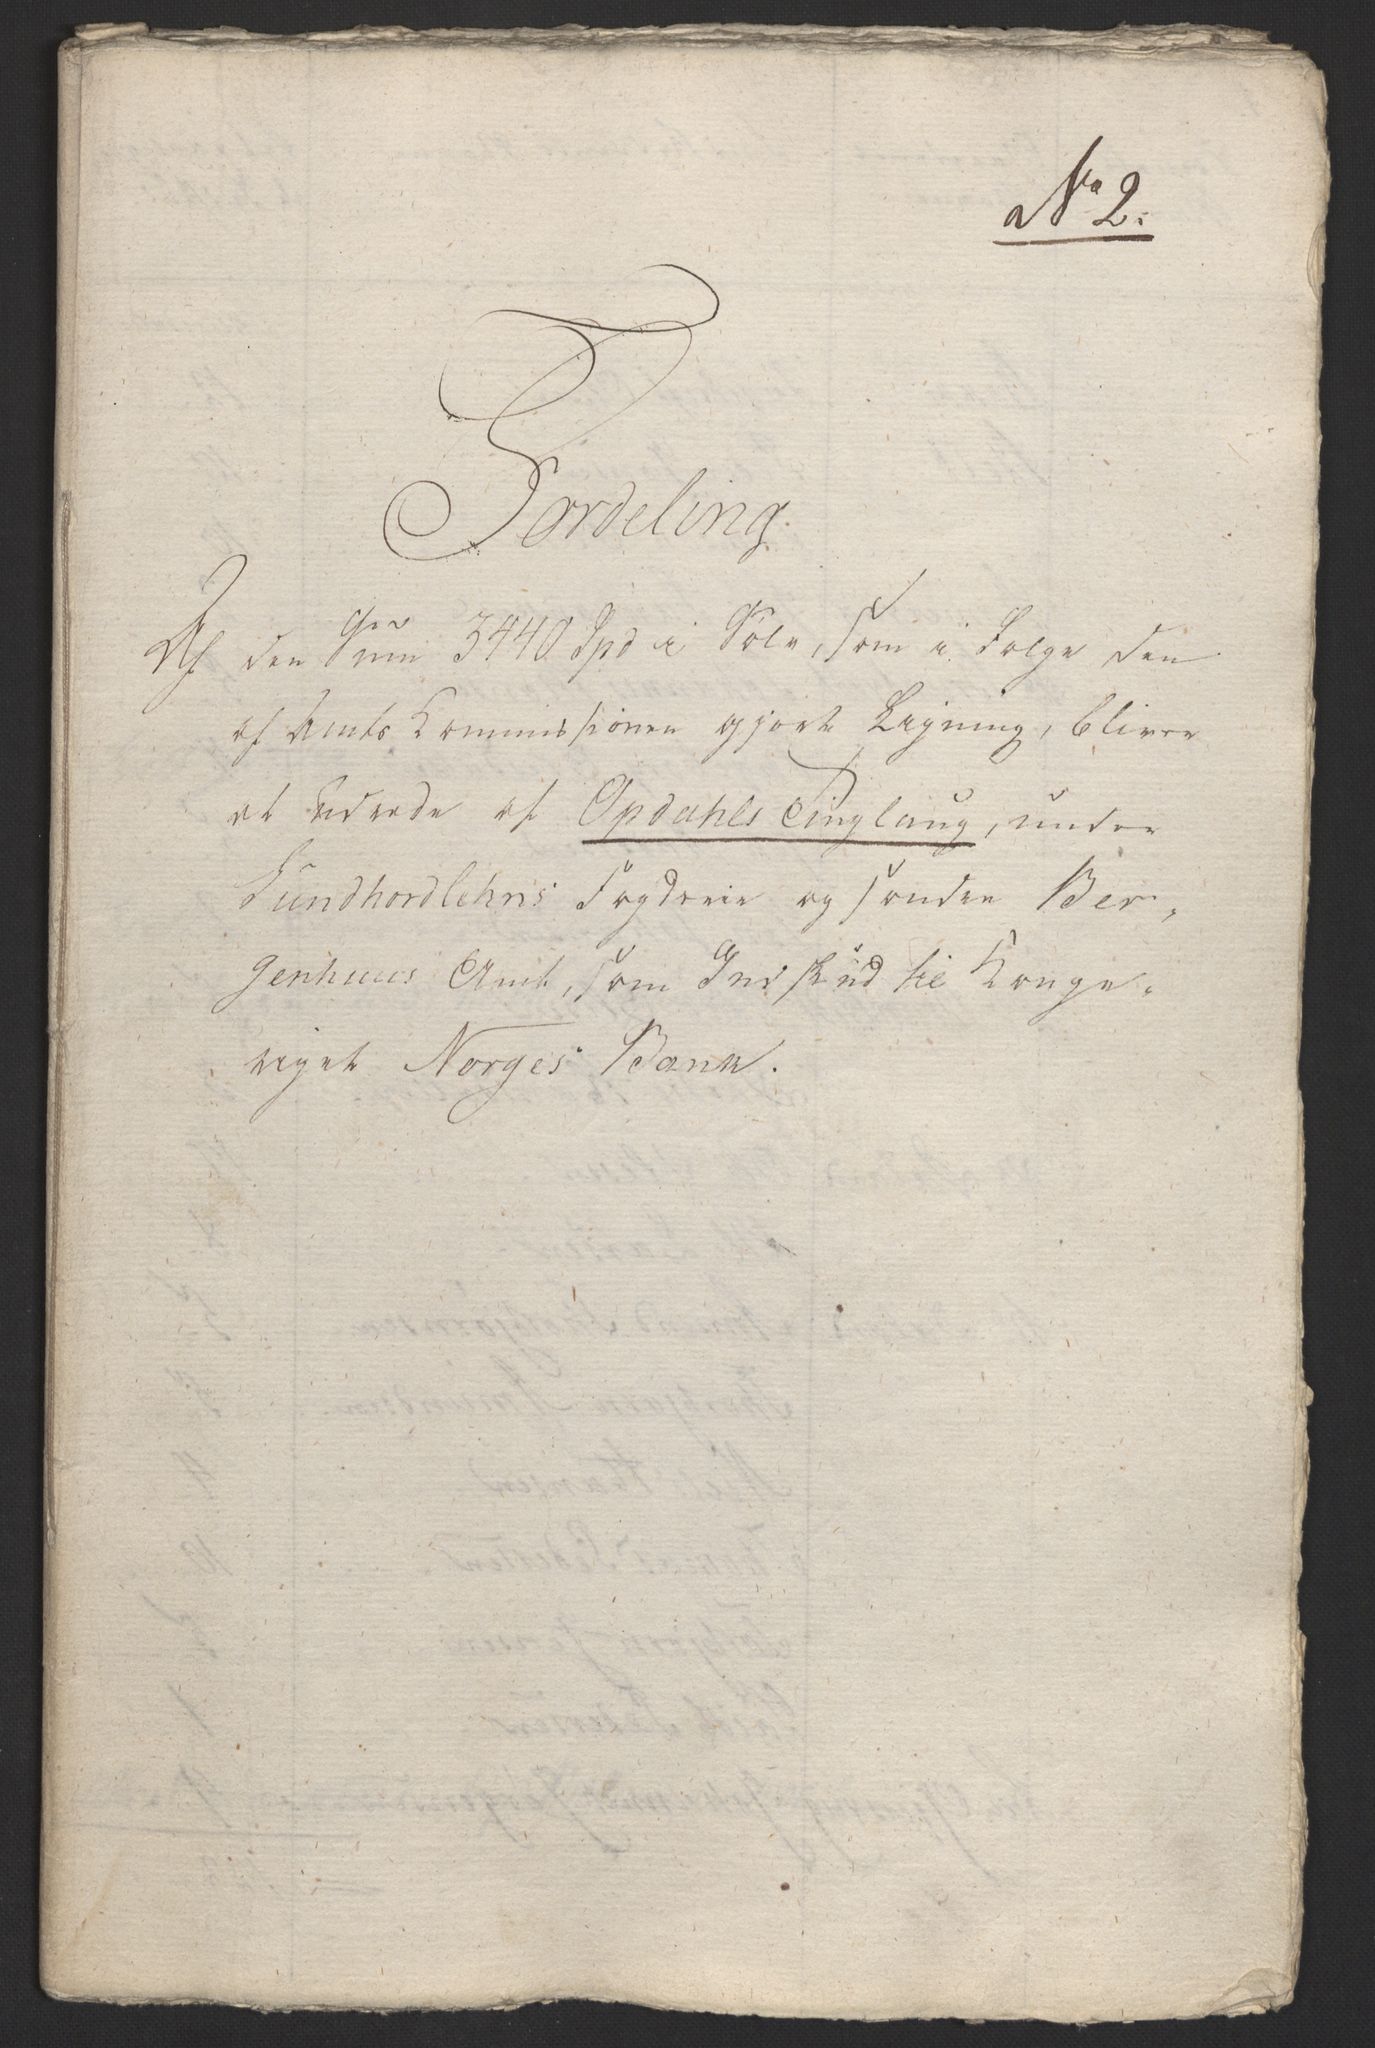 No 2.
Fordeling
Af den Sum 3440 Spd i Sølv, som i Følge den
af Amts Kommissionen gjort Ligning, bliver
at udrede af Opdahls Tinglaug, under
Sundhordlehns Fogderie og søndre Ber-
genhuus Amt, som Indskud til Konge-
riget Norges Bank.